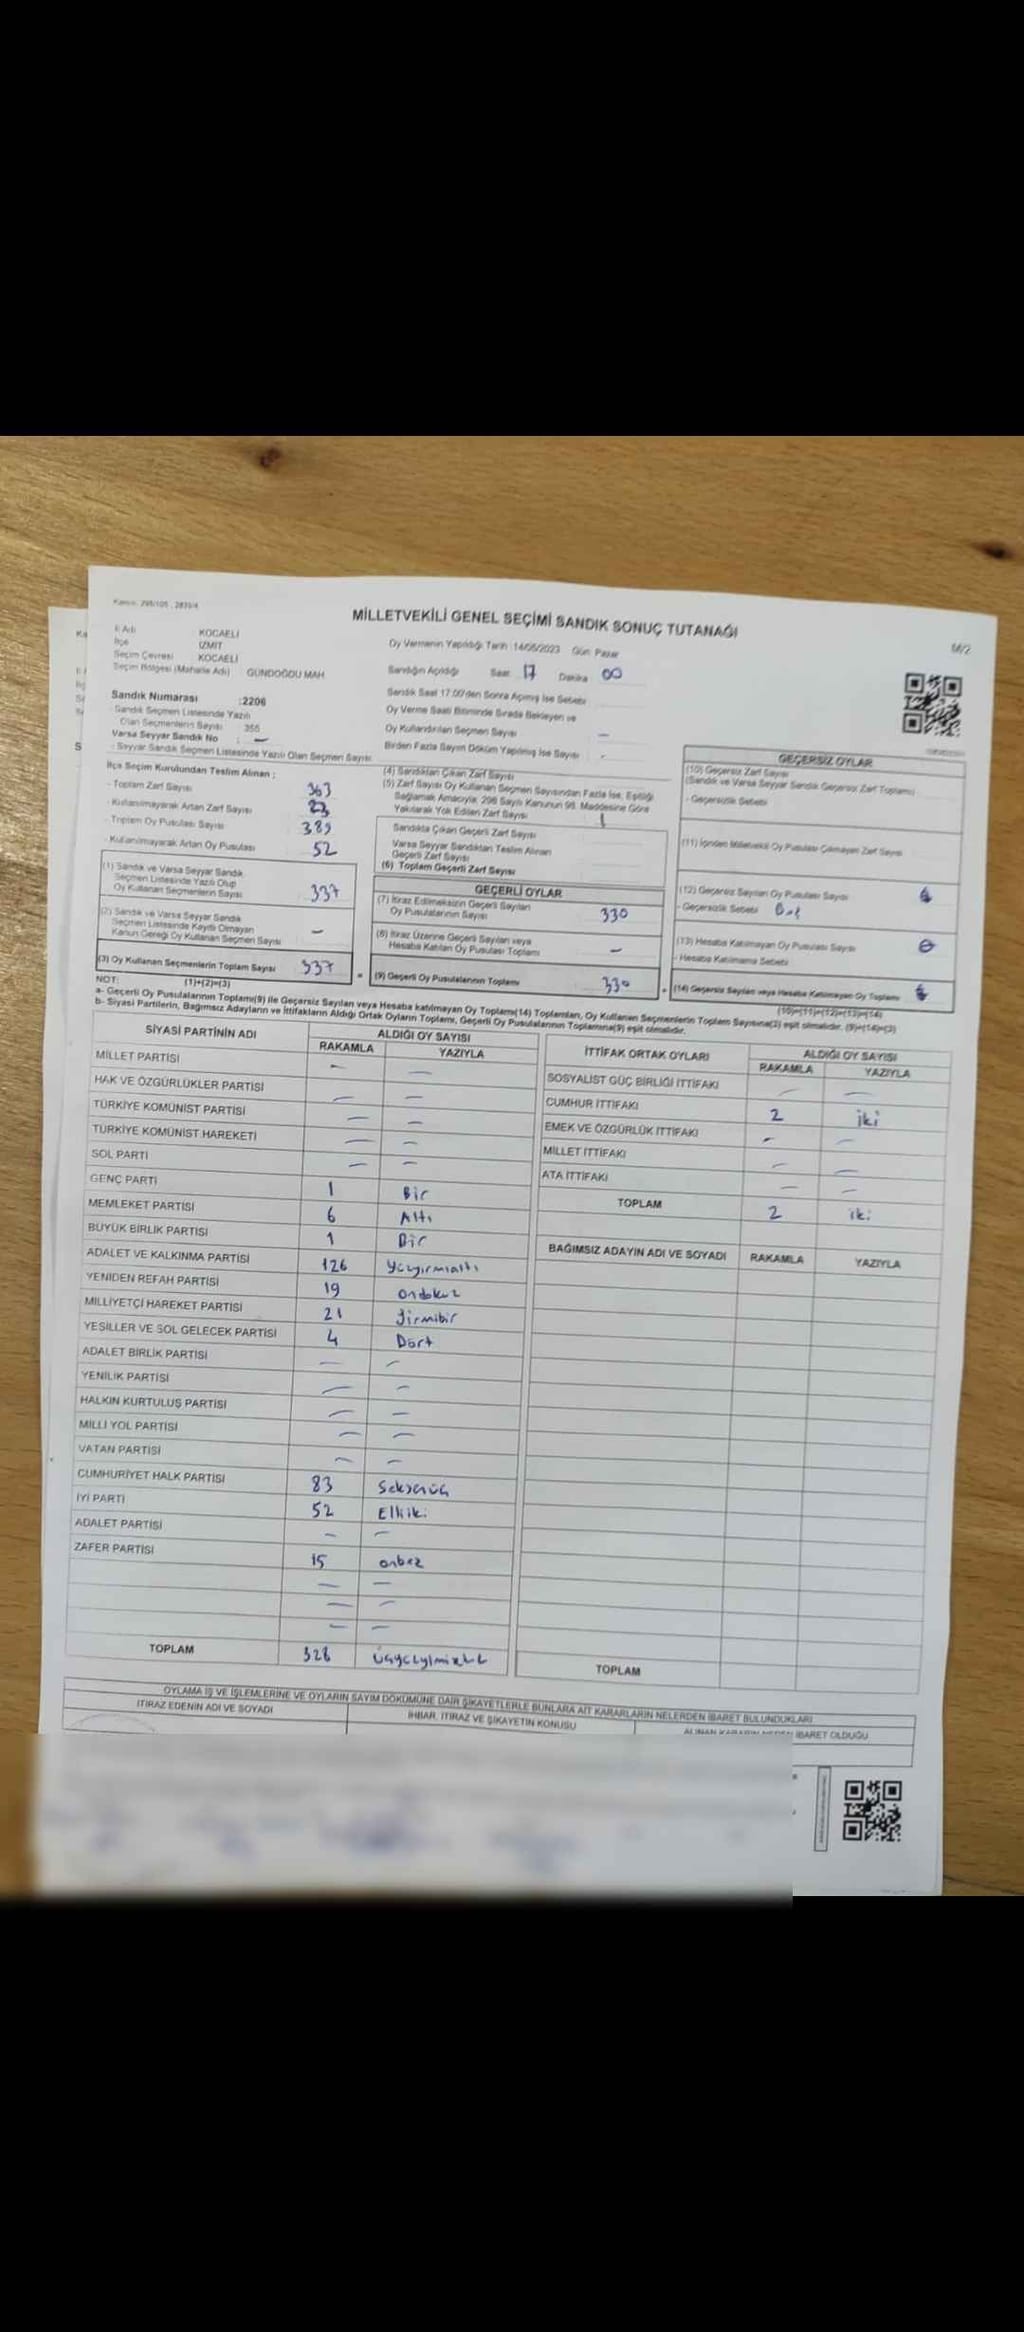 Kanun: 298/105 , 2839/4
MİLLETVEKİLİ GENEL SEÇİMİ SANDIK SONUÇ TUTANAĞI
M/2
İl Adı KOCAELİ
İlçe İZMİT
Seçim Çevresi KOCAELİ
Seçim Bölgesi (Mahalle Adı) GÜNDOĞDU MAH
Oy Vermenin Yapıldığı Tarih :14/05/2023 Gün: Pazar
Sandığın Açıldığı Saat 17 Dakika 00
Sandık Saat 17.00'den Sonra Açılmış İse Sebebi
Oy Verme Saati Bitiminde Sırada Bekleyen ve
Oy Kullandırılan Seçmen Sayısı —
Birden Fazla Sayım Döküm Yapılmış İse Sayısı -
Sandık Numarası :2206
Sandık Seçmen Listesinde Yazılı
Olan Seçmenlerin Sayısı 355
Varsa Seyyar Sandık No : —
- Seyyar Sandık Seçmen Listesinde Yazılı Olan Seçmen Sayısı
İlçe Seçim Kurulundan Teslim Alınan ;
- Toplam Zarf Sayısı 363
- Kullanılmayarak Artan Zarf Sayısı
- Toplam Oy Pusulası Sayısı 389
- Kullanılmayarak Artan Oy Pusulası 52
(1) Sandık ve Varsa Seyyar Sandık
Seçmen Listesinde Yazılı Olup
Oy Kullanan Seçmenlerin Sayısı 337
(2) Sandık ve Varsa Seyyar Sandık
Seçmen Listesinde Kayıtlı Olmayan
Kanun Gereği Oy Kullanan Seçmen Sayısı —
(3) Oy Kullanan Seçmenlerin Toplam Sayısı 337
(1)+(2)=(3)
(4) Sandıktan Çıkan Zarf Sayısı
(5) Zarf Sayısı Oy Kullanan Seçmen Sayısından Fazla İse, Eşitliği
Sağlamak Amacıyla, 298 Sayılı Kanunun 98. Maddesine Göre
Yakılarak Yok Edilen Zarf Sayısı
Sandıkta Çıkan Geçerli Zarf Sayısı
Varsa Seyyar Sandıktan Teslim Alınan
Geçerli Zarf Sayısı
(6) Toplam Geçerli Zarf Sayısı
GEÇERLİ OYLAR
(7) İtiraz Edilmeksizin Geçerli Sayılan
Oy Pusulalarının Sayısı 330
(8) İtiraz Üzerine Geçerli Sayılan veya
Hesaba Katılan Oy Pusulası Toplamı —
(9) Geçerli Oy Pusulalarının Toplamı 330
GEÇERSİZ OYLAR
(10) Geçersiz Zarf Sayısı
(Sandık ve Varsa Seyyar Sandık Geçersiz Zarf Toplamı)
- Geçersizlik Sebebi
(11) İçinden Milletvekili Oy Pusulası Çıkmayan Zarf Sayısı
(12) Geçersiz Sayılan Oy Pusulası Sayısı
- Geçersizlik Sebebi
(13) Hesaba Katılmayan Oy Pusulası Sayısı
- Hesaba Katılmama Sebebi
(14) Geçersiz Sayılan veya Hesaba Katılmayan Oy Toplamı
(10)+(11)+(12)+(13)=(14)
NOT:
a- Geçerli Oy Pusulalarının Toplamı(9) ile Geçersiz Sayılan veya Hesaba katılmayan Oy Toplamı(14) Toplamları, Oy Kullanan Seçmenlerin Toplam Sayısına(3) eşit olmalıdır. (9)+(14)=(3)
b- Siyasi Partilerin, Bağımsız Adayların ve İttifakların Aldığı Ortak Oyların Toplamı, Geçerli Oy Pusulalarının Toplamına(9) eşit olmalıdır.
SİYASİ PARTİNİN ADI ALDIĞI OY SAYISI
RAKAMLA YAZIYLA
MİLLET PARTİSİ — —
HAK VE ÖZGÜRLÜKLER PARTİSİ — —
TÜRKİYE KOMÜNİST PARTİSİ — —
TÜRKİYE KOMÜNİST HAREKETİ — —
SOL PARTİ — —
GENÇ PARTİ 1 Bir
MEMLEKET PARTİSİ 6 Altı
BÜYÜK BİRLİK PARTİSİ 1 Bir
ADALET VE KALKINMA PARTİSİ 126 Yüzyirmialtı
YENİDEN REFAH PARTİSİ 19 ondokuz
MİLLİYETÇİ HAREKET PARTİSİ 21 Yirmibir
YEŞİLLER VE SOL GELECEK PARTİSİ 4 Dört
ADALET BİRLİK PARTİSİ — —
YENİLİK PARTİSİ — —
HALKIN KURTULUŞ PARTİSİ — —
MİLLİ YOL PARTİSİ — —
VATAN PARTİSİ — —
CUMHURİYET HALK PARTİSİ 83 Seksenüç
İYİ PARTİ 52 Elliiki
ADALET PARTİSİ — —
ZAFER PARTİSİ 15 onbeş
— —
— —
— —
TOPLAM 328 üçyüzyirmisekiz
İTTİFAK ORTAK OYLARI ALDIĞI OY SAYISI
RAKAMLA YAZIYLA
SOSYALİST GÜÇ BİRLİĞİ İTTİFAKI — —
CUMHUR İTTİFAKI 2 iki
EMEK VE ÖZGÜRLÜK İTTİFAKI - —
MİLLET İTTİFAKI — —
ATA İTTİFAKI — —
TOPLAM 2 iki
BAĞIMSIZ ADAYIN ADI VE SOYADI RAKAMLA YAZIYLA
TOPLAM
OYLAMA İŞ VE İŞLEMLERİNE VE OYLARIN SAYIM DÖKÜMÜNE DAİR ŞİKAYETLERLE BUNLARA AİT KARARLARIN NELERDEN İBARET BULUNDUKLARI
İTİRAZ EDENİN ADI VE SOYADI
İHBAR, İTİRAZ VE ŞİKAYETİN KONUSU
ALINAN KARARIN NEDEN İBARET OLDUĞU